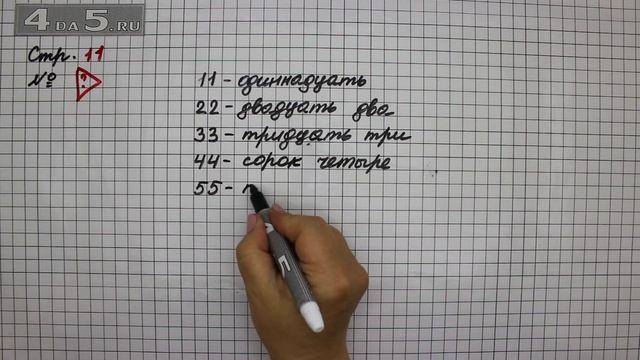 4 DA 5.RU
Стр. 11
№ ?
11 - одиннадцать
22 - двадцать два
33 - тридцать три
44 - сорок четыре
55 - п